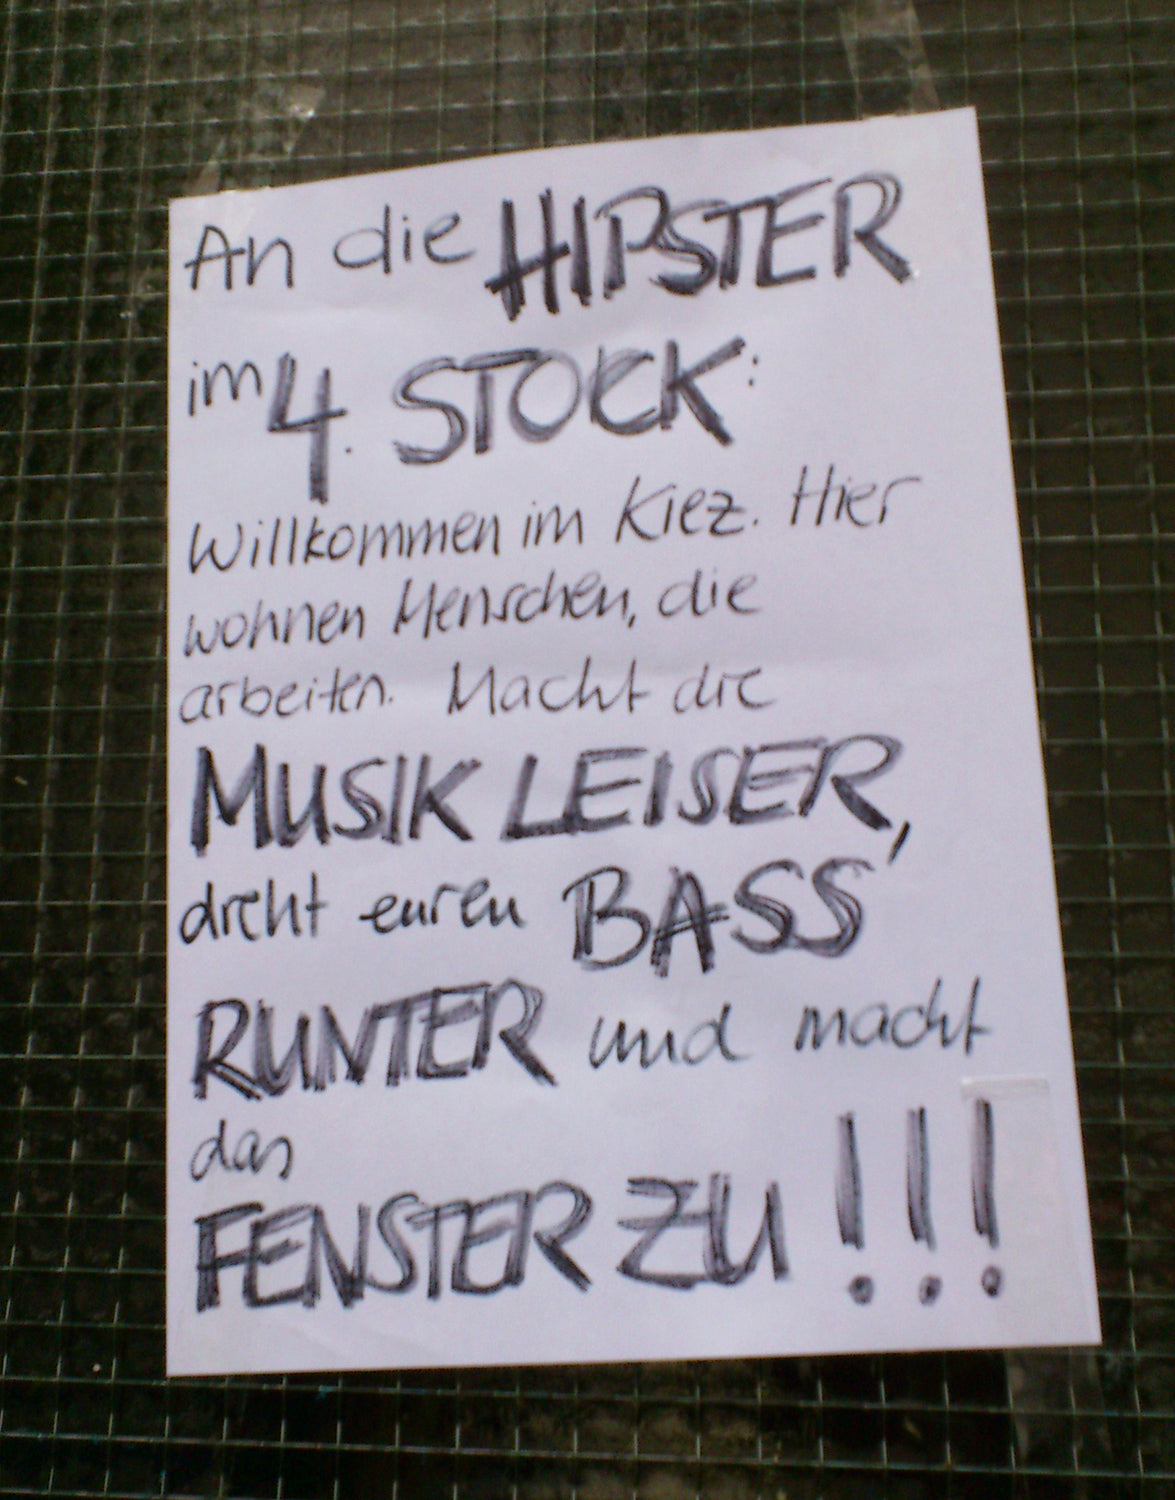 An die HIPSTER
im 4. STOCK:
Willkommen im Kiez. Hier
wohnen Menschen, die
arbeiten. Macht die
MUSIK LEISER,
dreht euren BASS
RUNTER und macht
das
FENSTER ZU!!!